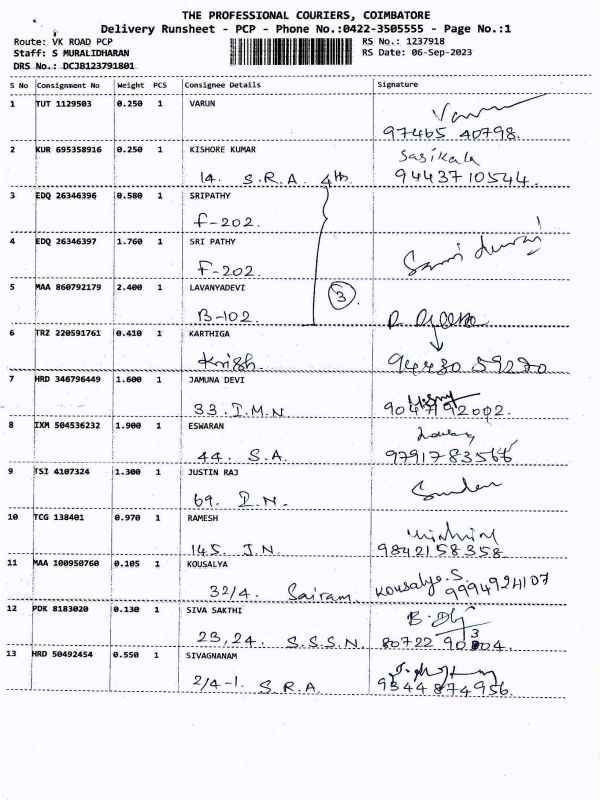 THE PROFESSIONAL COURIERS, COIMBATORE
Delivery Runsheet - PCP - Phone No.:0422-3505555 - Page No.:1
Route: VK ROAD PCP
Staff: S MURALIDHARAN
DRS No.: DCJB123791801
RS No.: 1237918
RS Date: 06-Sep-2023
S No Consignment No Weight PCS Consignee Details Signature
1 TUT 1129503 0.250 1 VARUN
97465 40798.
2 KUR 695358916 0.250 1 KISHORE KUMAR Sasikala
14. S.R.A. 4th 9443710544.
3 EDQ 26346396 0.580 1 SRIPATHY
F-202.
4 EDQ 26346397 1.760 1 SRI PATHY
F-202.
5 MAA 860792179 2.400 1 LAVANYADEVI
B-102. 3
6 TRZ 220591761 0.410 1 KARTHIGA
Krish. 94430 59270
7 HRD 346796449 1.600 1 JAMUNA DEVI
33. I.M.N
8 IXM 504536232 1.900 1 ESWARAN
44. S.A.
9 TSI 4107324 1.300 1 JUSTIN RAJ
69. I.N.
10 TCG 138401 0.970 1 RAMESH
145. I.N. 9842158358
11 MAA 100950760 0.105 1 KOUSALYA
32/4. Sairam. Kousalya.S 9994924107
12 PDK 8183020 0.130 1 SIVA SAKTHI
23,24. S.S.S.N.
13 HRD 50492454 0.550 1 SIVAGNANAM
2/4-1. S.R.A. 9344874956.